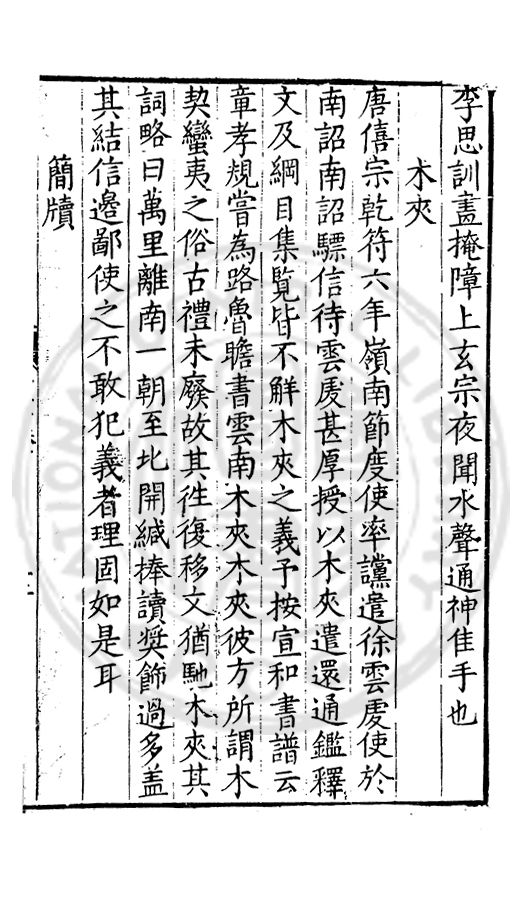 李思訓畫掩障上玄宗夜聞水聲通神佳手也
木夾
唐僖宗乾符六年嶺南節度使辛讜遣徐雲䖍使於
南詔南詔驃信待雲䖍甚厚授以木夾遣還通鑑釋
文及綱目集覽皆不觧木夾之義予按宣和書譜云
章孝規嘗為路魯瞻書雲南木夾木夾彼方所謂木
契蠻夷之俗古禮未廢故其徃復移文猶馳木夾其
詞略曰萬里離南一朝至北開緘捧讀奖飾過多盖
其結信邉鄙使之不敢犯義者理固如是耳
簡牘